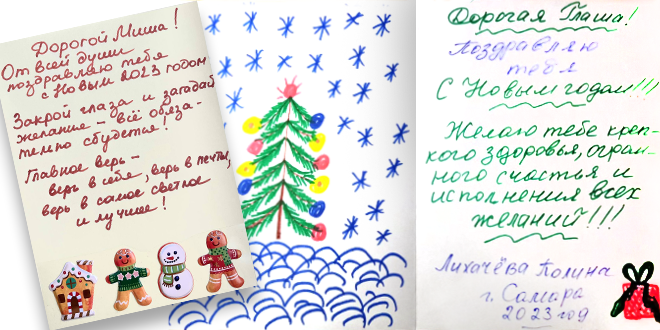 Дорогой Миша!
От всей души
поздравляю тебя
с Новым 2023 годом
Закрой глаза и загадай
желание – всё обяза-
тельно сбудется!
Главное верь –
верь в себя, верь в мечты,
верь в самое светлое
и лучшее!
Дорогая Глаша!
Поздравляю
тебя
С Новым годом!!!
Желаю тебе креп-
кого здоровья, огром-
ного счастья и
исполнения всех
желаний!!!
Лихачёва Полина
г. Самара
2023 год